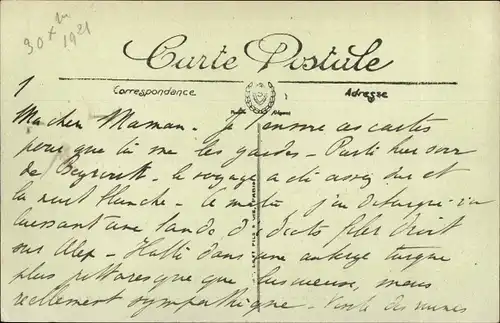 30 Xbre 1921
Carte Postale
Correspondance
Adresse
1
Ma chère Maman. Je t'envoie ces cartes
pour que tu me les gardes - Parti hier soir
de Beyrouth - le voyage a été assez dur et
la nuit blanche - le matin j'ai débarqué
laissant une bande d' filer droit
sur Alep - Halte dans une auberge turque
plus pittoresque que luxueuse, mais
réellement sympathique - Visite des ruines